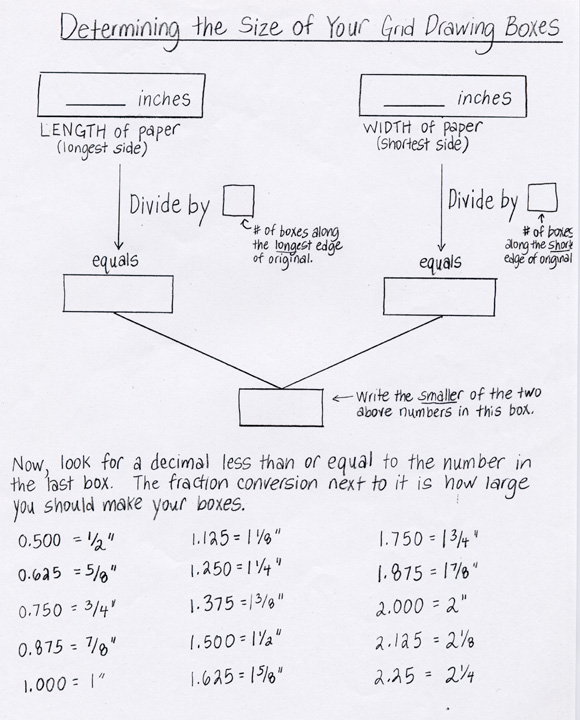 Determining the Size of Your Grid Drawing Boxes
______ inches
LENGTH of paper
(longest side)
______ inches
WIDTH of paper
(shortest side)
Divide by
# of boxes along
the longest edge
of original.
equals
Divide by
# of boxes
along the short
edge of original
equals
Write the smaller of the two
above numbers in this box.
Now, look for a decimal less than or equal to the number in
the last box. The fraction conversion next to it is how large
you should make your boxes.
0.500 = 1/2"
0.625 = 5/8"
0.750 = 3/4"
0.875 = 7/8"
1.000 = 1"
1.125 = 1 1/8"
1.250 = 1 1/4"
1.375 = 1 3/8"
1.500 = 1 1/2"
1.625 = 1 5/8"
1.750 = 1 3/4"
1.875 = 1 7/8"
2.000 = 2"
2.125 = 2 1/8
2.25 = 2 1/4